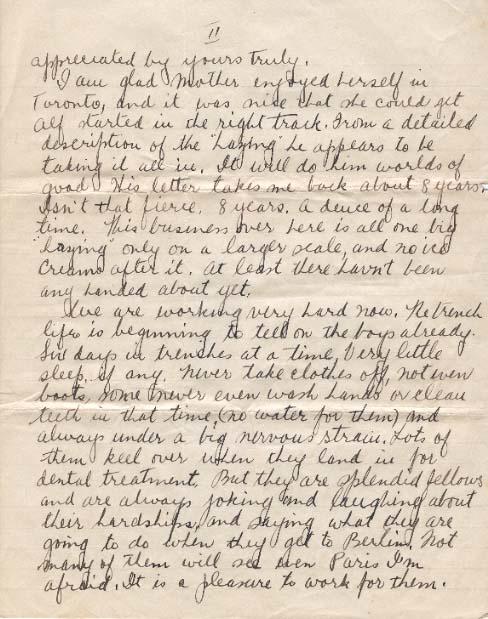 II
appreciated by yours truly.
I am glad Mother enjoyed herself in
Toronto, and it was nice that she could get
Alf started in the right track. From a detailed
description of the "hazing" he appears to be
taking it all in. It will do him worlds of
good. His letter takes me back about 8 years.
Isn't that fierce. 8 years. A deuce of a long
time. This business over here is all one big
"hazing" only on a larger scale, and no ice
creams after it. At least there havn't been
any handed about yet.
We are working very hard now. The trench
life is beginning to tell on the boys already.
Six days in trenches at a time, Very little
sleep, if any. Never take clothes off, not even
boots, some never even wash hands or clean
teeth in that time, (no water for them) and
always under a big nervous strain. Lots of
them keel over when they land in for
dental treatment. But they are splendid fellows
and are always joking and laughing about
their hardships, and saying what they are
going to do when they get to Berlin. Not
many of them will see even Paris I'm
afraid. It is a pleasure to work for them.